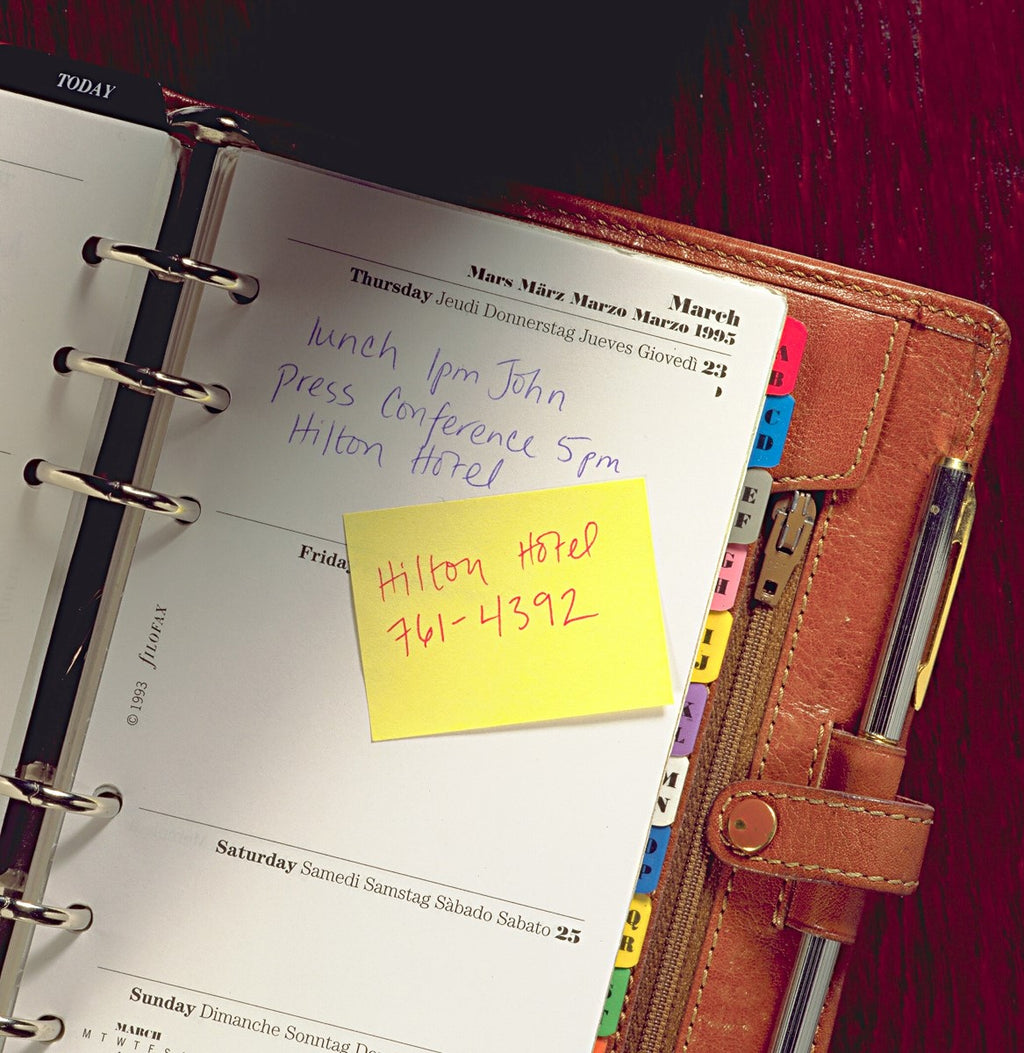 TODAY
March
Mars März Marzo Marzo 1995
Thursday Jeudi Donnerstag Jueves Giovedì 23
lunch 1pm John
Press Conference 5pm
Hilton Hotel
Friday
Hilton Hotel
761-4392
© 1993 fILOFAX
Saturday Samedi Samstag Sàbado Sabato 25
Sunday Dimanche Sonntag
MARCH
M T W T F S
A
B
C
D
E
F
G
H
I
J
K
L
M
N
O
P
Q
R
S